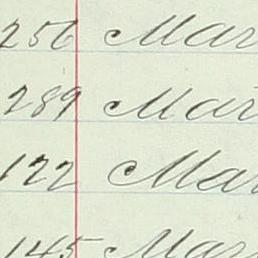 256 Mar
289 Mar
122 Mar
145 Mar